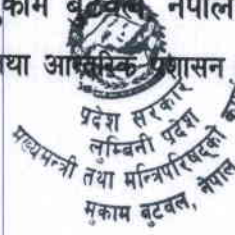 मुकाम बुटवल, नेपाल
तथा आन्तरिक प्रशासन
प्रदेश सरकार
लुम्बिनी प्रदेश
मुख्यमन्त्री तथा मन्त्रिपरिषद्को
मुकाम बुटवल, नेपाल